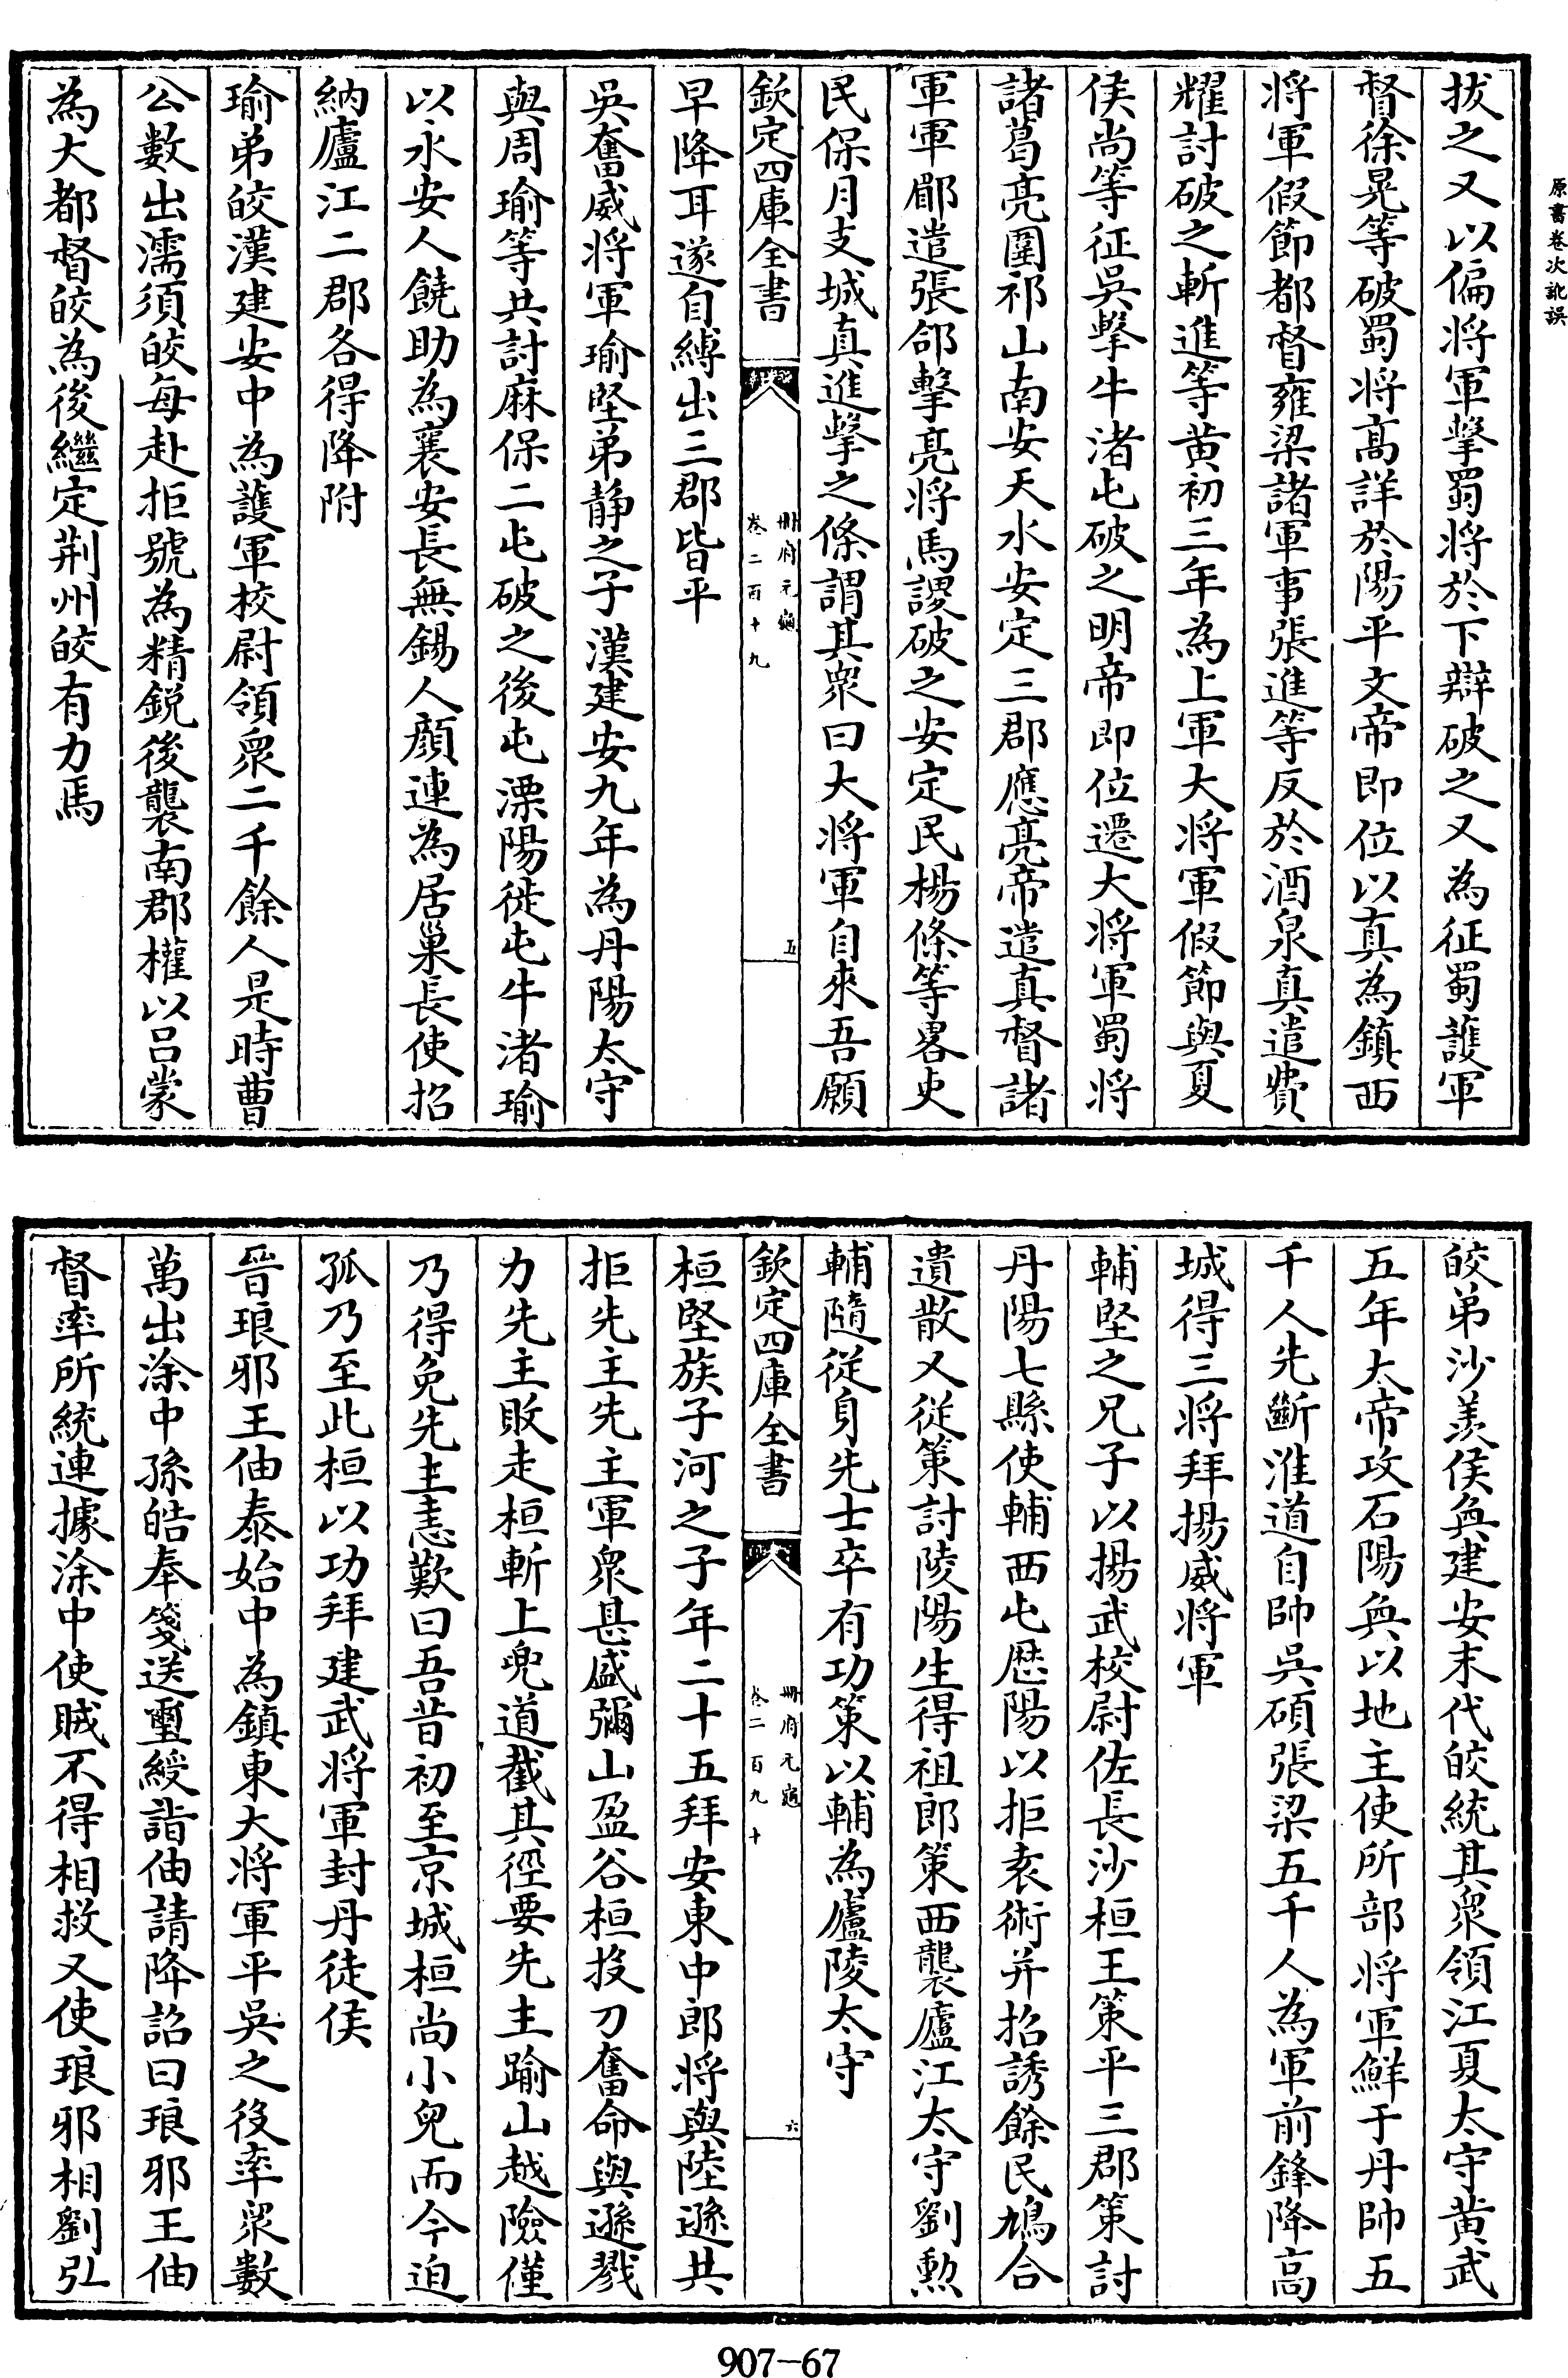 原書卷次訛誤
拔之又以偏将軍擊蜀将於下辯破之又為征蜀護軍
督徐晃等破蜀将髙詳於陽平文帝即位以真為鎮西
将軍假節都督雍梁諸軍事張進等反於酒泉真遣費
耀討破之斬進等黄初三年為上軍大将軍假節與夏
侯尚等征吳擊牛渚屯破之明帝即位遷大将軍蜀将
諸葛亮圍祁山南安天水安定三郡應亮帝遣真督諸
軍軍郿遣張郃擊亮将馬謖破之安定民楊條等畧吏
民保月支城真進擊之條謂其衆曰大将軍自來吾願
欽定四庫全書
冊府元龜
卷二百十九
五
早降耳遂自縛出三郡皆平
吳奮威将軍瑜堅弟静之子漢建安九年為丹陽太守
與周瑜等共討麻保二屯破之後屯溧陽徙屯牛渚瑜
以永安人饒助為襄安長無錫人顔連為居巢長使招
納廬江二郡各得降附
瑜弟皎漢建安中為護軍校尉領衆二千餘人是時曹
公數出濡須皎每赴拒號為精銳後襲南郡權以吕蒙
為大都督皎為後繼定荆州皎有力焉
皎弟沙羡侯奐建安末代皎統其衆領江夏太守黄武
五年太帝攻石陽奐以地主使所部将軍鮮于丹帥五
千人先斷淮道自帥吳碩張梁五千人為軍前鋒降高
城得三将拜揚威将軍
輔堅之兄子以揚武校尉佐長沙桓王策平三郡策討
丹陽七縣使輔西屯歴陽以拒袁術并招誘餘民鳩合
遺散又從策討陵陽生得祖郎策西襲廬江太守劉勲
輔隨從身先士卒有功策以輔為廬陵太守
欽定四庫全書
冊府元龜
卷二百九十
六
桓堅族子河之子年二十五拜安東中郎将與陸遜共
拒先主先主軍衆甚盛彌山盈谷桓投刀奮命與遜戮
力先主敗走桓斬上兠道截其徑要先主踰山越險僅
乃得免先主恚歎曰吾昔初至京城桓尚小兒而今迫
孤乃至此桓以功拜建武将軍封丹徒侯
晉琅邪王伷泰始中為鎮東大将軍平吳之役率衆數
萬出涂中孫皓奉箋送璽綬詣伷請降詔曰琅邪王伷
督率所統連據涂中使賊不得相救又使琅邪相劉弘
907-67